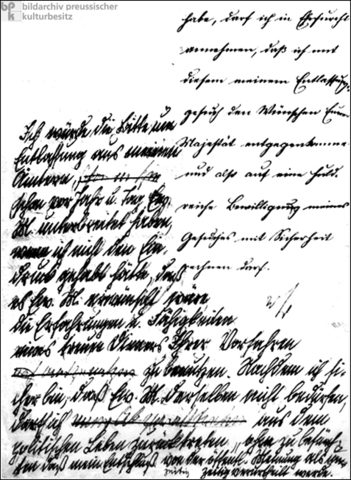 bildarchiv preussischer
kulturbesitz
habe, darf ich in Ehrfurcht
annehmen, daß ich mit
diesem meinem Entlassungs-
gesuch den Wünschen Eurer
Majestät entgegenkomme
und also auf eine huld-
reiche Bewilligung meines
Gesuches mit Sicherheit
rechnen darf.
Ich würde die Bitte um
Entlassung aus meinen
Aemtern
schon vor Jahr u. Tag Ew.
M. unterbreitet haben,
wenn ich nicht den Ein-
druck gehabt hätte, daß
es Ew. M. erwünscht wäre
die Erfahrungen u. Fähigkeiten
eines treuen Dieners Ihrer Vorfahren
zu benutzen. Nachdem ich si-
cher bin, daß Ew. M. derselben nicht bedürfen,
darf ich aus dem
politischen Leben zurücktreten, ohne zu befürch-
ten daß mein Entschluß von der öffentl. Meinung als un-
zeitig verurtheilt werde.